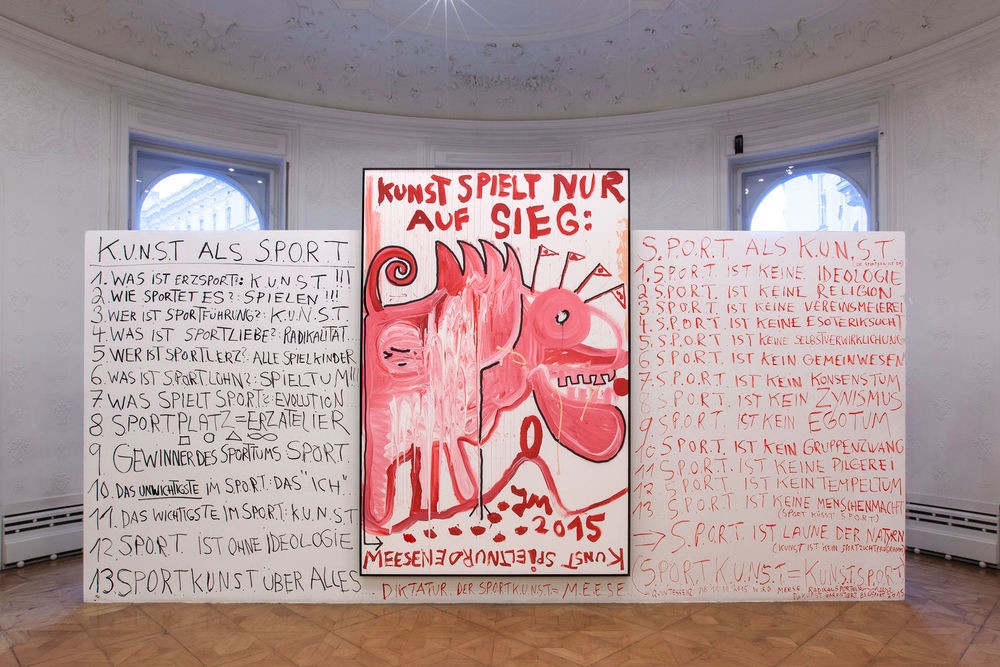 K.U.N.S.T ALS S.P.O.R.T
1. WAS IST ERZSPORT?: K.U.N.S.T.!!!
2. WIE SPORTET ES?: SPIELEN!!!
3. WER IST SPORTFÜHRUNG?: K.U.N.S.T.
4. WAS IST SPORTLIEBE?: RADIKALITÄT..
5. WER IST SPORTLERZ?: ALLE SPIELKINDER
6. WAS IST SPORTLOHN?: SPIELTUM!!!
7. WAS SPIELT SPORT?: EVOLUTION
8 SPORTPLATZ=ERZATELIER
9. GEWINNER DES SPORTIUMS SPORT.
10. DAS UNWICHTIGSTE IM SPORT: DAS "ICH"..
11. DAS WICHTIGSTE IM SPORT: K.U.N.S.T
12. S.P.O.R.T. IST OHNE IDEOLOGIE
13 SPORTKUNST ÜBER ALLES
KUNST SPIELT NUR
AUF SIEG:
JM
2015
MEESE
KUNST SPIELT NUR DEN
DIKTATUR. DER SPORTKUNST= M.E.E.S.E.
S.P.O.R.T ALS K.U.N.S.T
1. S.P.O.R.T. IST KEINE IDEOLOGIE
2. S.P.O.R.T. IST KEINE RELIGION
3 S.P.O.R.T. IST KEINE VEREINSMEIEREI
4. S.P.O.R.T. IST KEINE ESOTERIKSUCHT
5. S.P.O.R.T. IST KEINE SELBSTVERWIRKLICHUNG
6 S.P.O.R.T. IST KEIN GEMEINWESEN
7 S.P.O.R.T. IST KEIN KONSENSTUM
8 S.P.O.R.T. IST KEIN ZYNISMUS
9 S.P.O.R.T. IST KEIN EGOTUM
10. S.P.O.R.T. IST KEIN GRUPPENZWANG
11 S.P.O.R.T. IST KEINE PILGEREI
12. S.P.O.R.T. IST KEIN TEMPELTUM
13. S.P.O.R.T. IST KEINE MENSCHENMACHT
(SPORT KÜSST S.P.O.R.T.)
→ S.P.O.R.T. IST LAUNE DER NATUREN
(KUNST IST KEIN
S.P.O.R.T.K.U.N.S.T.=KUNSTSPORT
QUINTESSENZ WIRD MEESE
2015